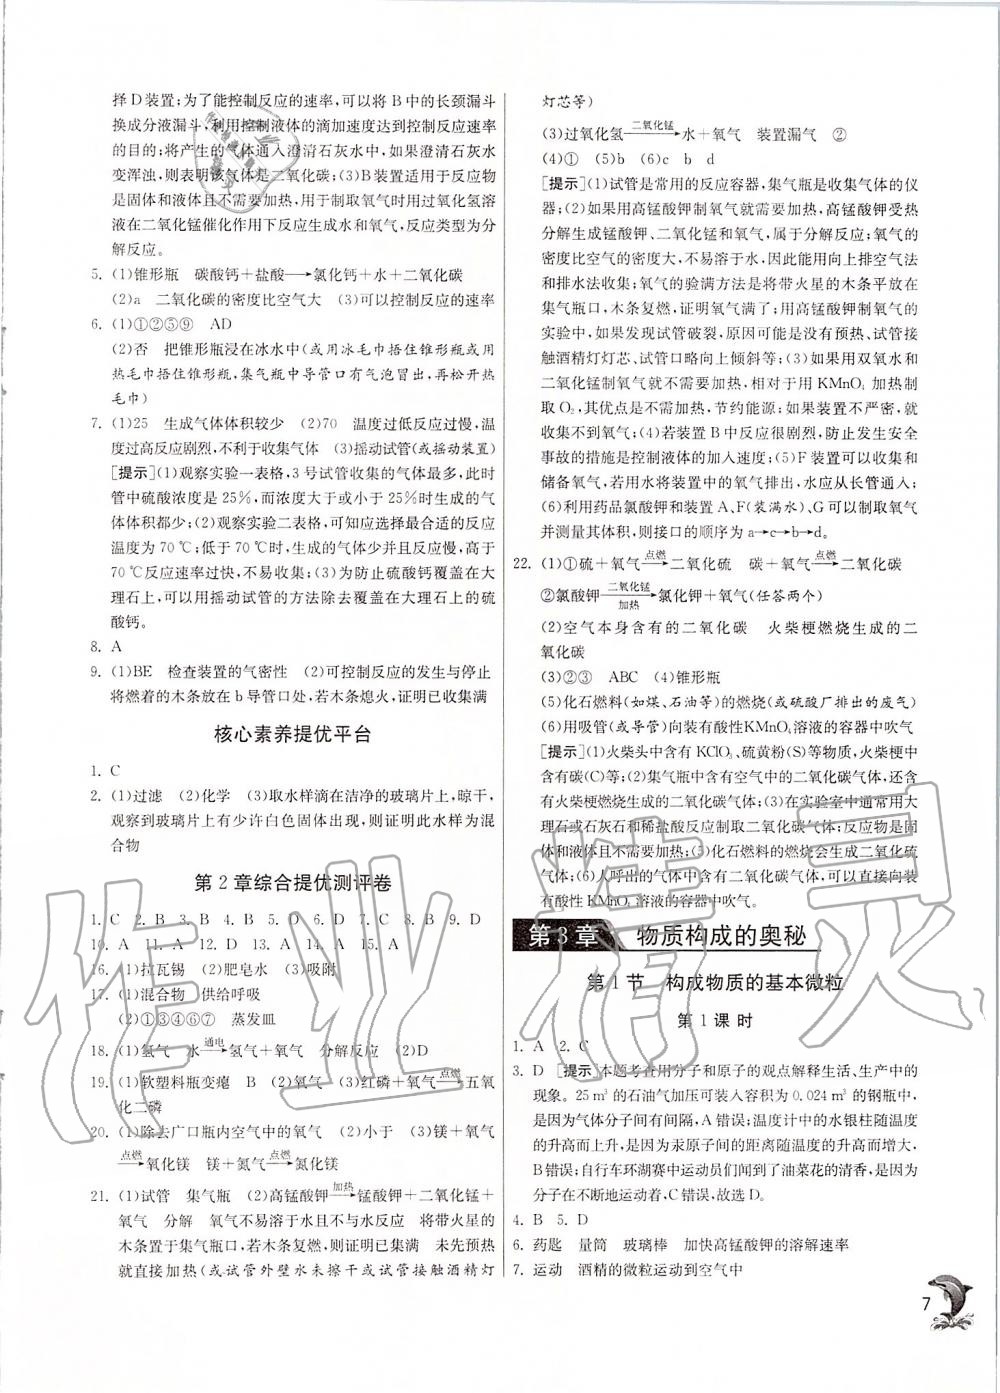 择D装置;为了能控制反应的速率,可以将B中的长颈漏斗
换成分液漏斗,利用控制液体的滴加速度达到控制反应速率
的目的;将产生的气体通入澄清石灰水中,如果澄清石灰水
变浑浊,则表明该气体是二氧化碳;(3)B装置适用于反应物
是固体和液体且不需要加热,用于制取氧气时用过氧化氢溶
液在二氧化锰催化作用下反应生成水和氧气,反应类型为分
解反应。
5. (1)锥形瓶 碳酸钙+盐酸→氯化钙+水+二氧化碳
(2)a 二氧化碳的密度比空气大 (3)可以控制反应的速率
6. (1)①②⑤⑨ AD
(2)否 把锥形瓶浸在冰水中(或用冰毛巾捂住锥形瓶或用
热毛巾捂住锥形瓶,集气瓶中导管口有气泡冒出,再松开热
毛巾)
7. (1)25 生成气体体积较少 (2)70 温度过低反应过慢,温
度过高反应剧烈,不利于收集气体 (3)摇动试管(或摇动装置)
[提示](1)观察实验一表格,3号试管收集的气体最多,此时
管中硫酸浓度是25%,而浓度大于或小于25%时生成的气
体体积都少;(2)观察实验二表格,可知应选择最合适的反应
温度为70℃;低于70℃时,生成的气体少并且反应慢,高于
70℃反应速率过快,不易收集;(3)为防止硫酸钙覆盖在大
理石上,可以用摇动试管的方法除去覆盖在大理石上的硫
酸钙。
8. A
9. (1)BE 检查装置的气密性 (2)可控制反应的发生与停止
将燃着的木条放在b导管口处,若木条熄火,证明已收集满
核心素养提优平台
1. C
2. (1)过滤 (2)化学 (3)取水样滴在洁净的玻璃片上,晾干,
观察到玻璃片上有少许白色固体出现,则证明此水样为混
合物
第2章综合提优测评卷
1. C 2. B 3. B 4. B 5. D 6. D 7. C 8. B 9. D
10. A 11. A 12. D 13. D 14. A 15. A
16. (1)拉瓦锡 (2)肥皂水 (3)吸附
17. (1)混合物 供给呼吸
(2)①③④⑥⑦ 蒸发皿
18. (1)氢气 水 通电→氢气+氧气 分解反应 (2)D
19. (1)软塑料瓶变瘪 B (2)氧气 (3)红磷+氧气 点燃→五氧
化二磷
20. (1)除去广口瓶内空气中的氧气 (2)小于 (3)镁+氧气
点燃→氧化镁 镁+氮气 点燃→氮化镁
21. (1)试管 集气瓶 (2)高锰酸钾 加热→锰酸钾+二氧化锰+
氧气 分解 氧气不易溶于水且不与水反应 将带火星的
木条置于集气瓶口,若木条复燃,则证明已集满 未先预热
就直接加热(或试管外壁水未擦干或试管接触酒精灯
灯芯等)
(3)过氧化氢 二氧化锰→水+氧气 装置漏气 ②
(4)① (5)b (6)c b d
[提示](1)试管是常用的反应容器,集气瓶是收集气体的仪
器;(2)如果用高锰酸钾制氧气就需要加热,高锰酸钾受热
分解生成锰酸钾、二氧化锰和氧气,属于分解反应;氧气的
密度比空气的密度大,不易溶于水,因此能用向上排空气法
和排水法收集;氧气的验满方法是将带火星的木条平放在
集气瓶口,木条复燃,证明氧气满了;用高锰酸钾制氧气的
实验中,如果发现试管破裂,原因可能是没有预热、试管接
触酒精灯灯芯、试管口略向上倾斜等;(3)如果用双氧水和
二氧化锰制氧气就不需要加热,相对于用KMnO₄加热制
取O₂,其优点是不需加热,节约能源;如果装置不严密,就
收集不到氧气;(4)若装置B中反应很剧烈,防止发生安全
事故的措施是控制液体的加入速度;(5)F装置可以收集和
储备氧气,若用水将装置中的氧气排出,水应从长管通入;
(6)利用药品氯酸钾和装置A、F(装满水)、G可以制取氧气
并测量其体积,则接口的顺序为a→c→b→d。
22. (1)①硫+氧气 点燃→二氧化硫 碳+氧气 点燃→二氧化碳
②氯酸钾 二氧化锰/加热→氯化钾+氧气(任答两个)
(2)空气本身含有的二氧化碳 火柴梗燃烧生成的二
氧化碳
(3)②③ ABC (4)锥形瓶
(5)化石燃料(如煤、石油等)的燃烧(或硫酸厂排出的废气)
(6)用吸管(或导管)向装有酸性KMnO₄溶液的容器中吹气
[提示](1)火柴头中含有KClO₃、硫黄粉(S)等物质,火柴梗中
含有碳(C)等;(2)集气瓶中含有空气中的二氧化碳气体,还含
有火柴梗燃烧生成的二氧化碳气体;(3)在实验室中通常用大
理石或石灰石和稀盐酸反应制取二氧化碳气体;反应物是固
体和液体且不需要加热;(5)化石燃料的燃烧会生成二氧化硫
气体;(6)人呼出的气体中含有二氧化碳气体,可以直接向装有
酸性KMnO₄溶液的容器中吹气。
第3章 物质构成的奥秘
第1节 构成物质的基本微粒
第1课时
1. A 2. C
3. D [提示]本题考查用分子和原子的观点解释生活、生产中的
现象。25 m³的石油气加压可装入容积为0.024 m³的钢瓶中,
是因为气体分子间有间隔,A错误;温度计中的水银柱随温度
的升高而上升,是因为汞原子间的距离随温度的升高而增大,
B错误;自行车环湖赛中运动员们闻到了油菜花的清香,是因为
分子在不断地运动着,C错误,故选D。
4. B 5. D
6. 药匙 量筒 玻璃棒 加快高锰酸钾的溶解速率
7. 运动 酒精的微粒运动到空气中
7
作业精灵